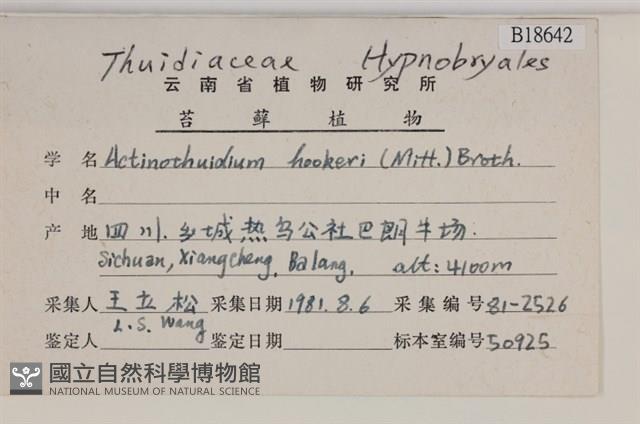 B18642
Thuidiaceae Hypnobryales
云南省植物研究所
苔藓植物
学名 Actinothuidium hookeri (Mitt.) Broth.
中名
产地 四川.乡城热乌公社巴朗牛场.
Sichuan, Xiangcheng, Balang, alt: 4100m
采集人 王立松 采集日期 1981.8.6 采集编号 81-2526
L.S. Wang
鉴定人 鉴定日期 标本室编号 50925
國立自然科學博物館
NATIONAL MUSEUM OF NATURAL SCIENCE